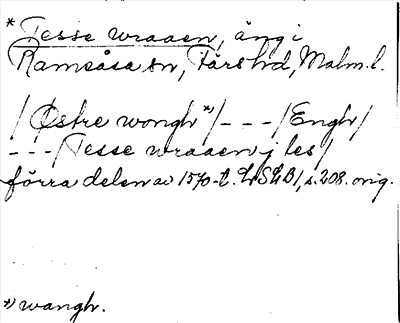 * Tesse wraaen, äng i
Ramsåsa sn, Färs hd, Malm. l.
/ Østre wongh *) / - - - / Engh /
- - - / Tesse wraaen j les /
förra delen av 1570-t. LSLB1, s. 208. orig.
*) wangh.